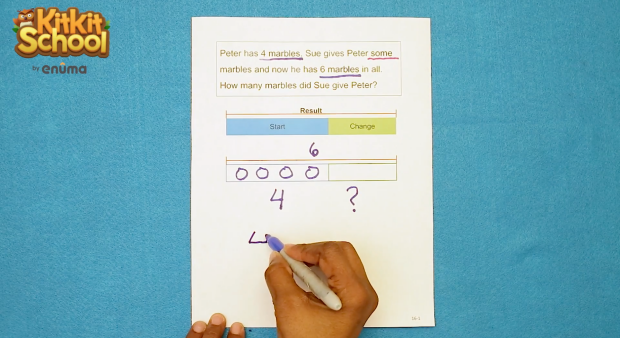 Kitkit
School
by enuma
Peter has 4 marbles. Sue gives Peter some
marbles and now he has 6 marbles in all.
How many marbles did Sue give Peter?
Result
Start Change
6
4 ?